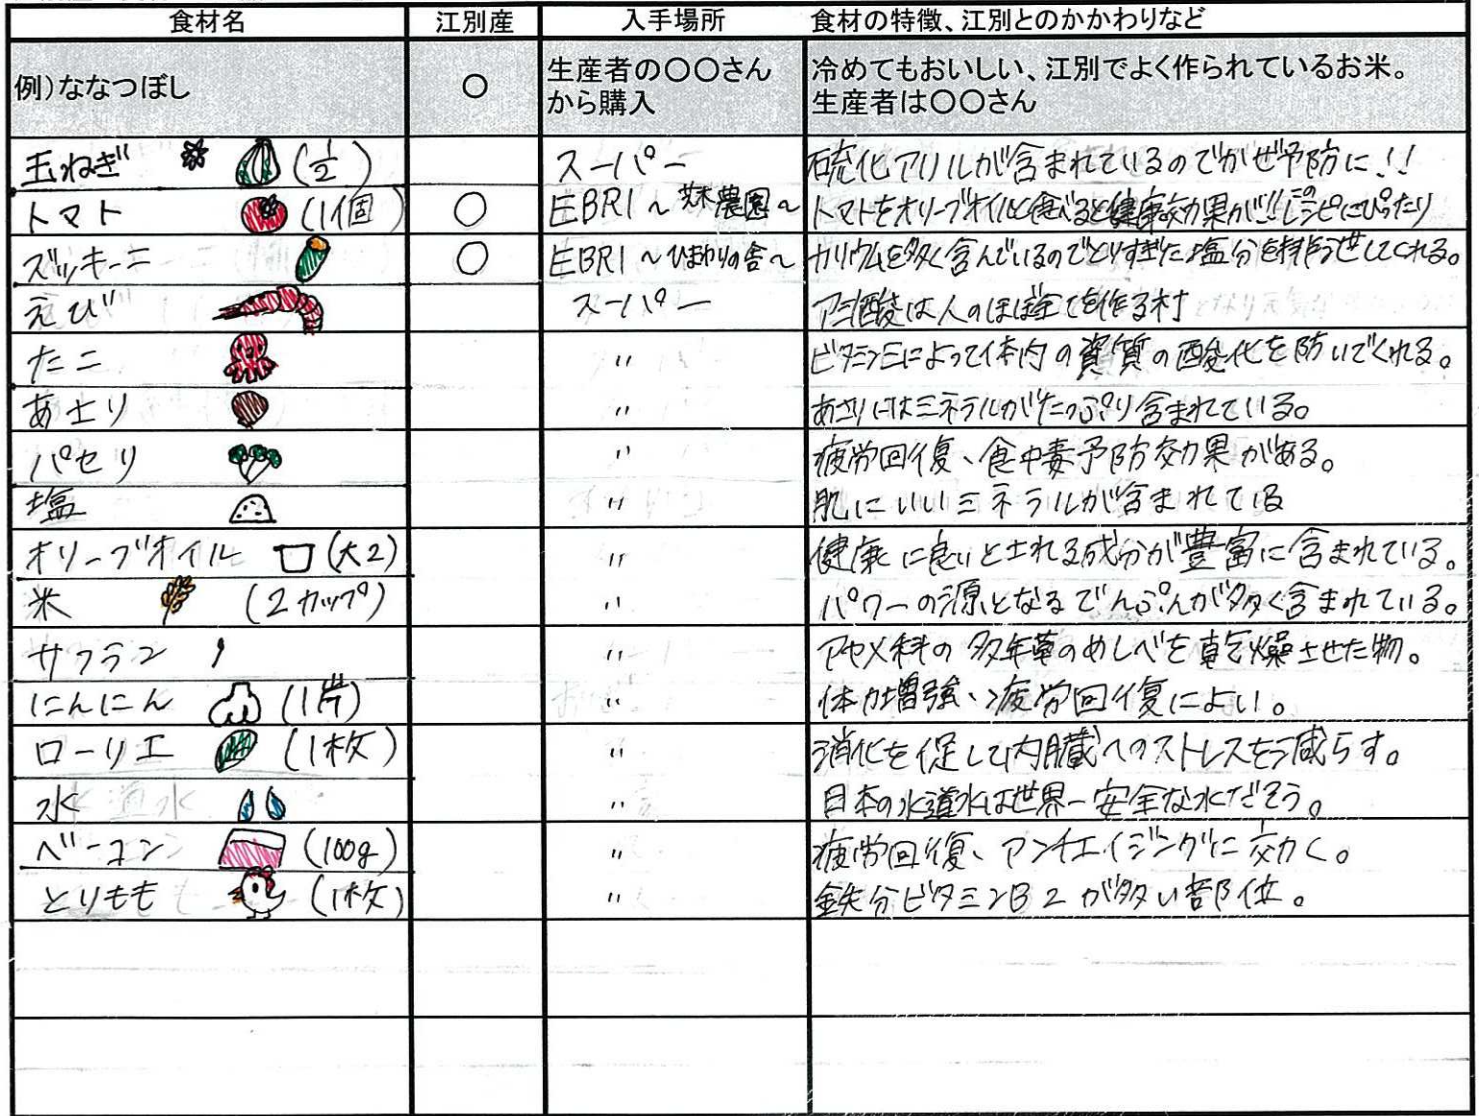 食材名 江別産 入手場所 食材の特徴、江別とのかかわりなど
例)ななつぼし ○ 生産者の○○さんから購入 冷めてもおいしい、江別でよく作られているお米。生産者は○○さん
玉ねぎ (1/2) スーパー 硫化アリルが含まれているのでかぜ予防に!!
トマト (1個) ○ EBRI~ 農園~ トマトをオリーブオイルと食べると健康効果が!!レシピにぴったり
ズッキーニ ○ EBRI~ひまわりの舎~ カリウムを多く含んでいるのでとりすぎた塩分を排出せしてくれる。
えび スーパー アミノ酸は人のほぼ全てを作る材
たこ 〃 ビタミンEによって体内の資質の酸化を防いでくれる。
あさり 〃 あさりにはミネラルがたっぷり含まれている。
パセリ 〃 疲労回復、食中毒予防効果がある。
塩 〃 肌にいいミネラルが含まれている
オリーブオイル (大2) 〃 健康に良いとされる成分が豊富に含まれている。
米 (2カップ) 〃 パワーの源となるでんぷんが多く含まれている。
サフラン 〃 アヤメ科の多年草のめしべを乾燥させた物。
にんにん (1片) 〃 体力増強、疲労回復によい。
ローリエ (1枚) 〃 消化を促して内臓へのストレスを減らす。
水 〃 日本の水道水は世界一安全な水だそう。
ベーコン (100g) 〃 疲労回復、アンチエイジングに効く。
とりもも (1枚) 〃 鉄分ビタミンB2が多い部位。